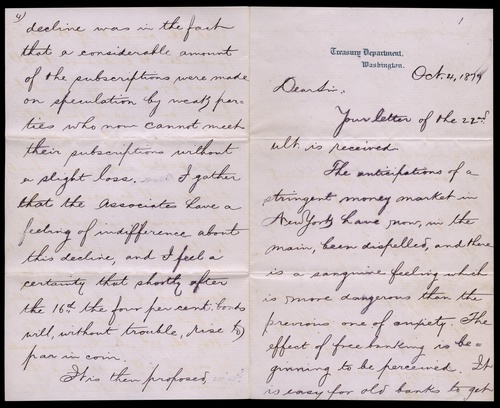 4)
decline was in the fact
that a considerable amount
of the subscriptions were made
on speculation by weak par-
ties who now cannot meet
their subscriptions without
a slight loss. I gather
that the Associates have a
feeling of indifference about
this decline, and I feel a
certainty that shortly after
the 16th the four per cent. bonds
will, without trouble, rise to
par in coin.
It is then proposed
1
Treasury Department,
Washington.
Oct. 4, 1879
Dear Sir,
Your letter of the 22nd
ult. is received.
The anticipations of a
stringent money market in
New York have now, in the
main, been dispelled, and there
is a sanguine feeling which
is more dangerous than the
previous one of anxiety. The
effect of free banking is be-
ginning to be perceived. It
is easy for old banks to get